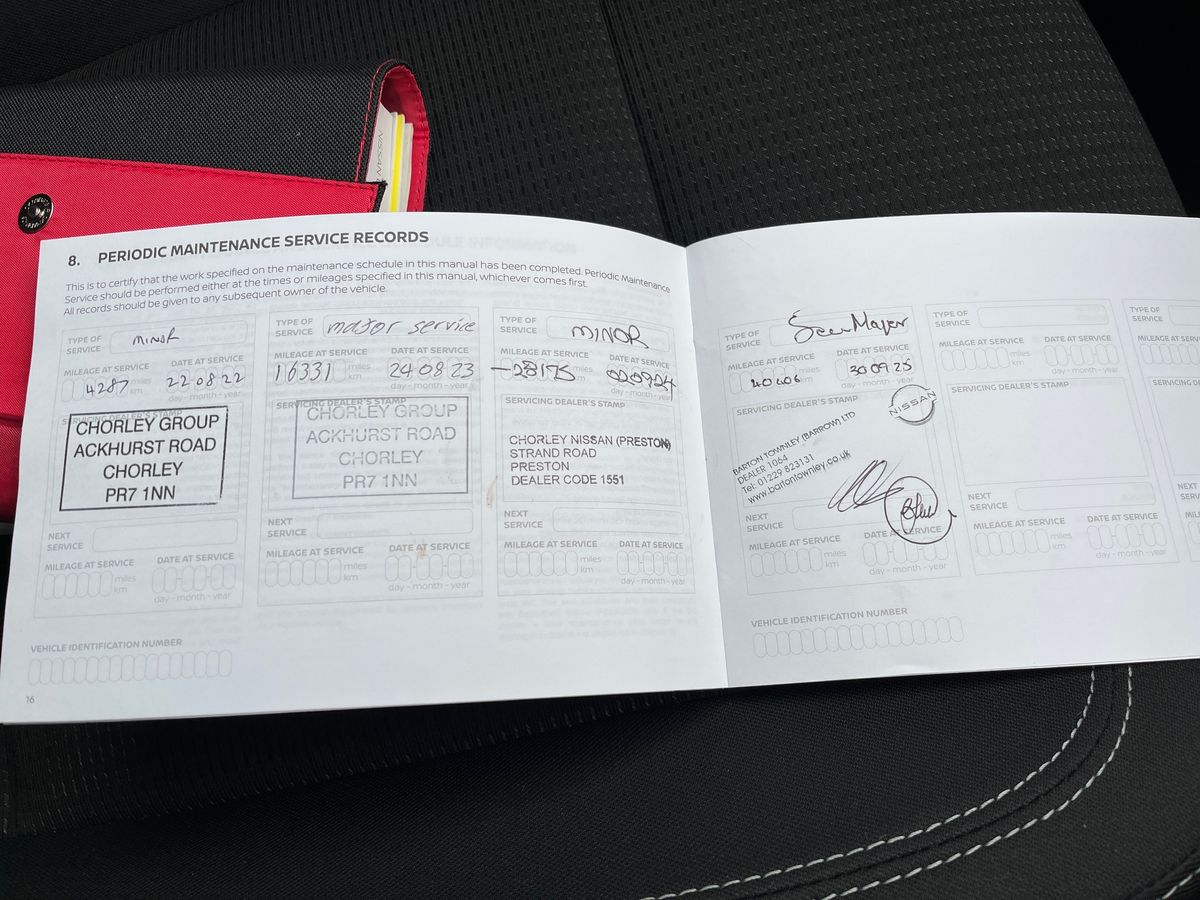 NISSAN
8. PERIODIC MAINTENANCE SERVICE RECORDS
This is to certify that the work specified on the maintenance schedule in this manual has been completed. Periodic Maintenance
Service should be performed either at the times or mileages specified in this manual, whichever comes first.
All records should be given to any subsequent owner of the vehicle.
TYPE OF SERVICE MINOR
MILEAGE AT SERVICE DATE AT SERVICE
4287 miles km 22 08 22
day - month - year
SERVICING DEALER'S STAMP
CHORLEY GROUP
ACKHURST ROAD
CHORLEY
PR7 1NN
NEXT SERVICE
MILEAGE AT SERVICE DATE AT SERVICE
miles km
day - month - year
TYPE OF SERVICE major service
MILEAGE AT SERVICE DATE AT SERVICE
16331 miles km 24 08 23
day - month - year
SERVICING DEALER'S STAMP
CHORLEY GROUP
ACKHURST ROAD
CHORLEY
PR7 1NN
NEXT SERVICE
MILEAGE AT SERVICE DATE AT SERVICE
miles km
day - month - year
TYPE OF SERVICE MINOR
MILEAGE AT SERVICE DATE AT SERVICE
28175 km 020924
day - month - year
SERVICING DEALER'S STAMP
CHORLEY NISSAN (PRESTON)
STRAND ROAD
PRESTON
DEALER CODE 1551
NEXT SERVICE
MILEAGE AT SERVICE DATE AT SERVICE
miles km
day - month - year
VEHICLE IDENTIFICATION NUMBER
16
TYPE OF SERVICE
MILEAGE AT SERVICE DATE AT SERVICE
40406 miles km 300925
day - month - year
SERVICING DEALER'S STAMP
NISSAN
BARTON TOWNLEY (BARROW) LTD
DEALER 1064
Tel: 01229 823131
www.bartontownley.co.uk
NEXT SERVICE
MILEAGE AT SERVICE DATE AT SERVICE
miles km
day - month - year
VEHICLE IDENTIFICATION NUMBER
TYPE OF SERVICE
MILEAGE AT SERVICE DATE AT SERVICE
miles km
day - month - year
SERVICING DEALER'S STAMP
NEXT SERVICE
MILEAGE AT SERVICE DATE AT SERVICE
miles km
day - month - year
TYPE OF SERVICE